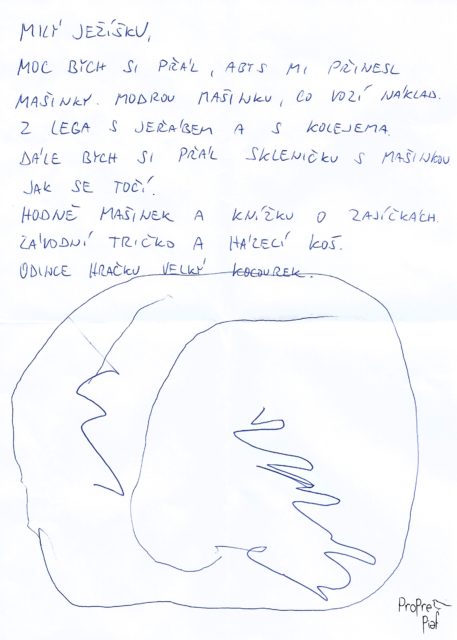 MILÝ JEŽÍŠKU,
MOC BYCH SI PŘÁL, ABYS MI PŘINESL
MAŠINKY. MODROU MAŠINKU, CO VOZÍ NÁKLAD.
Z LEGA S JEŘÁBEM A S KOLEJEMA.
DÁLE BYCH SI PŘÁL SKLENIČKU S MAŠINKOU
JAK SE TOČÍ.
HODNĚ MAŠINEK A KNÍŽKU O ZAJÍČKÁCH.
ZÁVODNÍ TRIČKO A HÁZECÍ KOŠ.
ODINCE HRAČKU VELKÝ KOCOUREK.